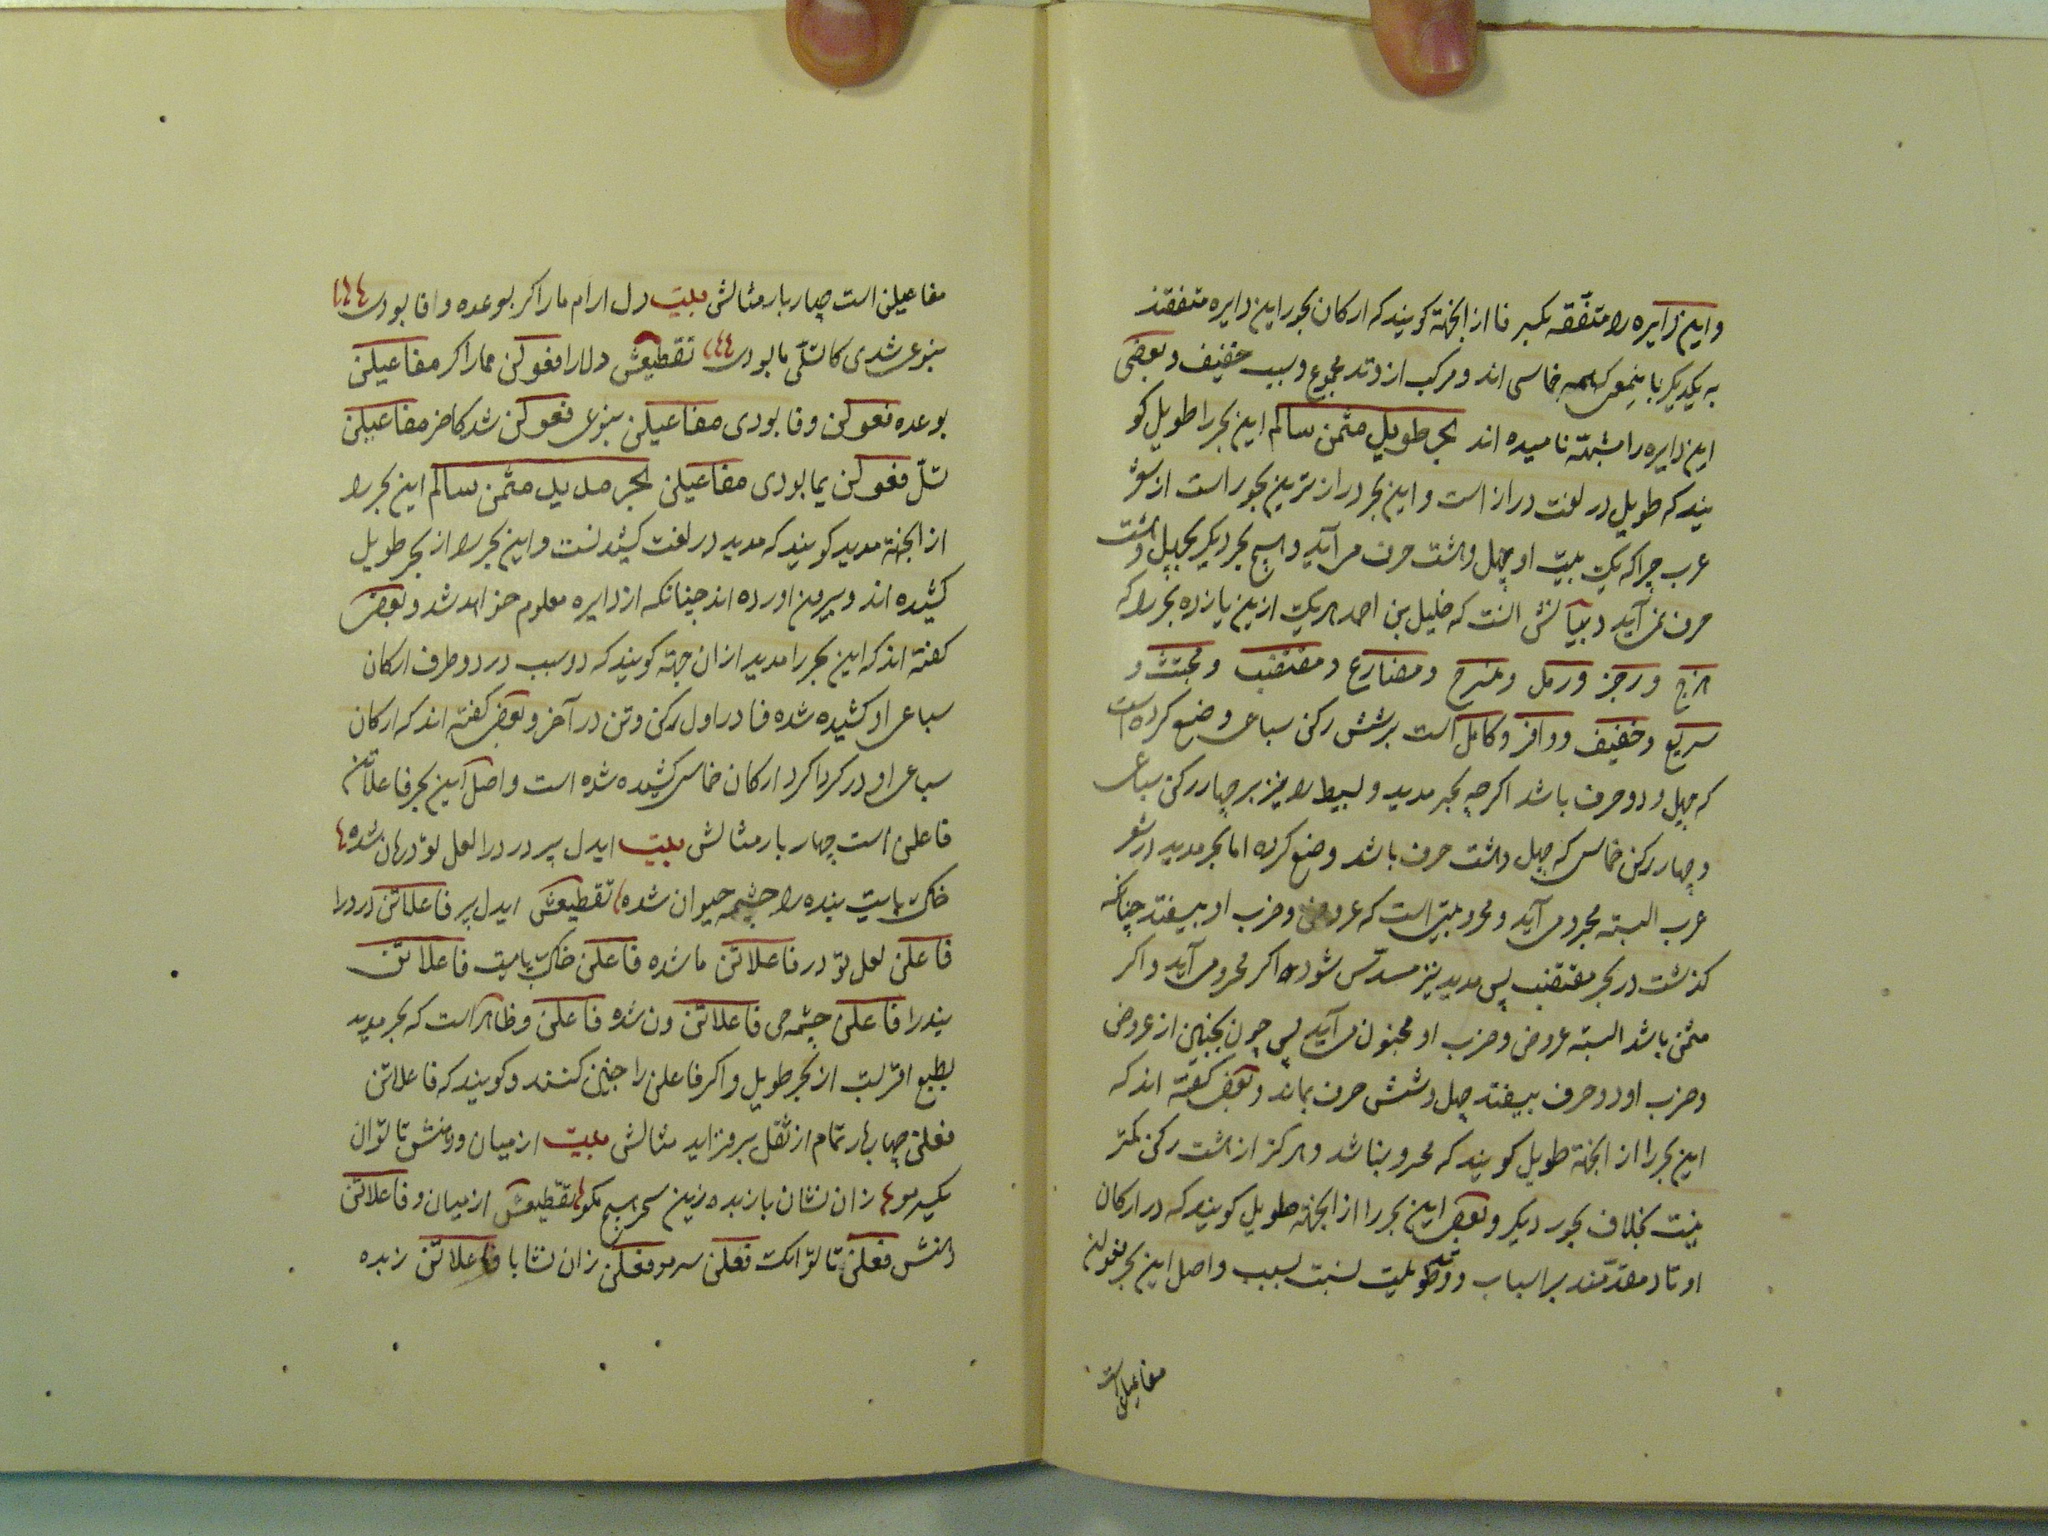 واین دایره را متّفقه بکسر فا از انجهة کویند که ارکان بحور این دایره متفقند
به یکدیکر باینمعنی که همه خماسی اند و مرکب از وتد مجموع و سبب خفیف و بعضی
این دایره را مشتبهه نامیده اند بحر طویل مثمن سالم این بحر را طویل کو
یند که طویل در لغت دراز است و این بحر درازترین بحور است از شعر
عرب چرا که یک بیت او چهل و هشت حرف می آید و هیچ بحر دیکر بچهل و هشت
حرف نمی آید و بیانش انست که خلیل بن احمد هر یک ازین یازده بحر را که
هزج و رجز و رمل و منسرح و مضارع و مقتضب و مجتث و
سریع و خفیف و وافر و کامل است بر شش رکن سباعی وضع کرده است
که چهل و دو حرف باشد اکرچه بحر مدید و بسیط را نیز بر چهار رکن سباعی
و چهار رکن خماسی که چهل و هشت حرف باشد وضع کرده اما بحر مدید در شعر
عرب البته مجزو می آید و مجزو بیتی است که عروض و ضرب او بیفتد چنانکه
کذشت در بحر مقتضب پس مدید نیز مسدّس شود اکر مجزو می آید و اکر
مثمن باشد البته عروض و ضرب او مخبون می آید پس چون بخبن از عروض
و ضرب او دو حرف بیفتد چهل و شش حرف بماند و بعضی کفته اند که
این بحر را از انجهة طویل کویند که مجزو نباشد و هرکز از هشت رکن کمتر
نیست بخلاف بحور دیکر و بعضی این بحر را از انجهة طویل کویند که در ارکان
اوتاد مقدّمند بر اسباب و وتد طویلست بنسبت بسبب و اصل این بحر فعولن
مفاعیلن است
مفاعیلن است چهار بار مثالش بیت دل ارام ما را کر بوعده وفا بودی
بنوعی شدی کا تسلّی ما بودی تقطیعش دلارا فعولن مما را کر مفاعیلن
بوعده فعولن وفا بودی مفاعیلن بنوعی فعولن شد کاخر مفاعیلن
تسلّ فعولن یما بودی مفاعیلن بحر مدید مثمن سالم این بحر را
از انجهة مدید کویند که مدید در لغت کشیدنست و این بحر را از بحر طویل
کشیده اند و بیرون اورده اند چنانکه از دایره معلوم خواهد شد و بعضی
کفته اند که این بحر را مدید از ان جهة کویند که دو سبب در دو طرف ارکان
سباعی او کشیده شده فا در اول رکن و تن در آخر و بعضی کفته اند که ارکان
سباعی او در کرداکرد ارکان خماسی کشیده شده است و اصل این بحر فاعلاتن
فاعلن است چهار بار مثالش بیت ایدل پر درد را لعل تو درمان شده
خاک پایت بنده را چشمه حیوان شده تقطیعش ایدل پر فاعلاتن درد را
فاعلن لعل تو در فاعلاتن ما شده فاعلن خاک پایت فاعلاتن
بندرا فاعلن چشمه حی فاعلاتن ون شده فاعلن و ظاهر است که بحر مدید
بطبع اقربست از بحر طویل و اکر فاعلن را خبن کنند و کویند که فاعلاتن
فعلن چهار بار تمام از ثقل بر می اید مثالش بیت از میان و دهنش تا توان
یکسر مو زان نشان باز بده زین سخن هیچ مکو تقطیعش از میان و فاعلاتن
دهنش فعلن تا توانک فعلن سر مو فعلن زان نشا با فاعلاتن زبده